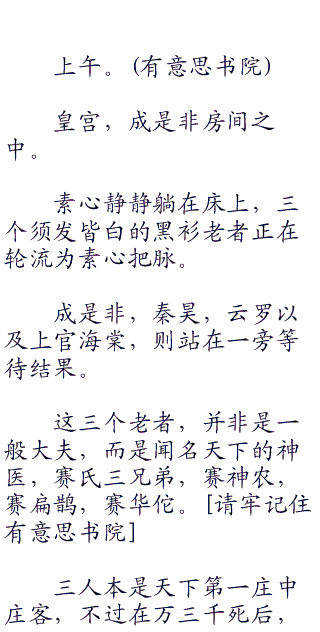 上午。 (有意思书院)
皇宫，成是非房间之
中。
素心静静躺在床上，三
个须发皆白的黑衫老者正在
轮流为素心把脉。
成是非，秦昊，云罗以
及上官海棠，则站在一旁等
待结果。
这三个老者，并非是一
般大夫，而是闻名天下的神
医，赛氏三兄弟，赛神农，
赛扁鹊，赛华佗。 [请牢记住
有意思书院]
三人本是天下第一庄中
庄客，不过在万三千死后，